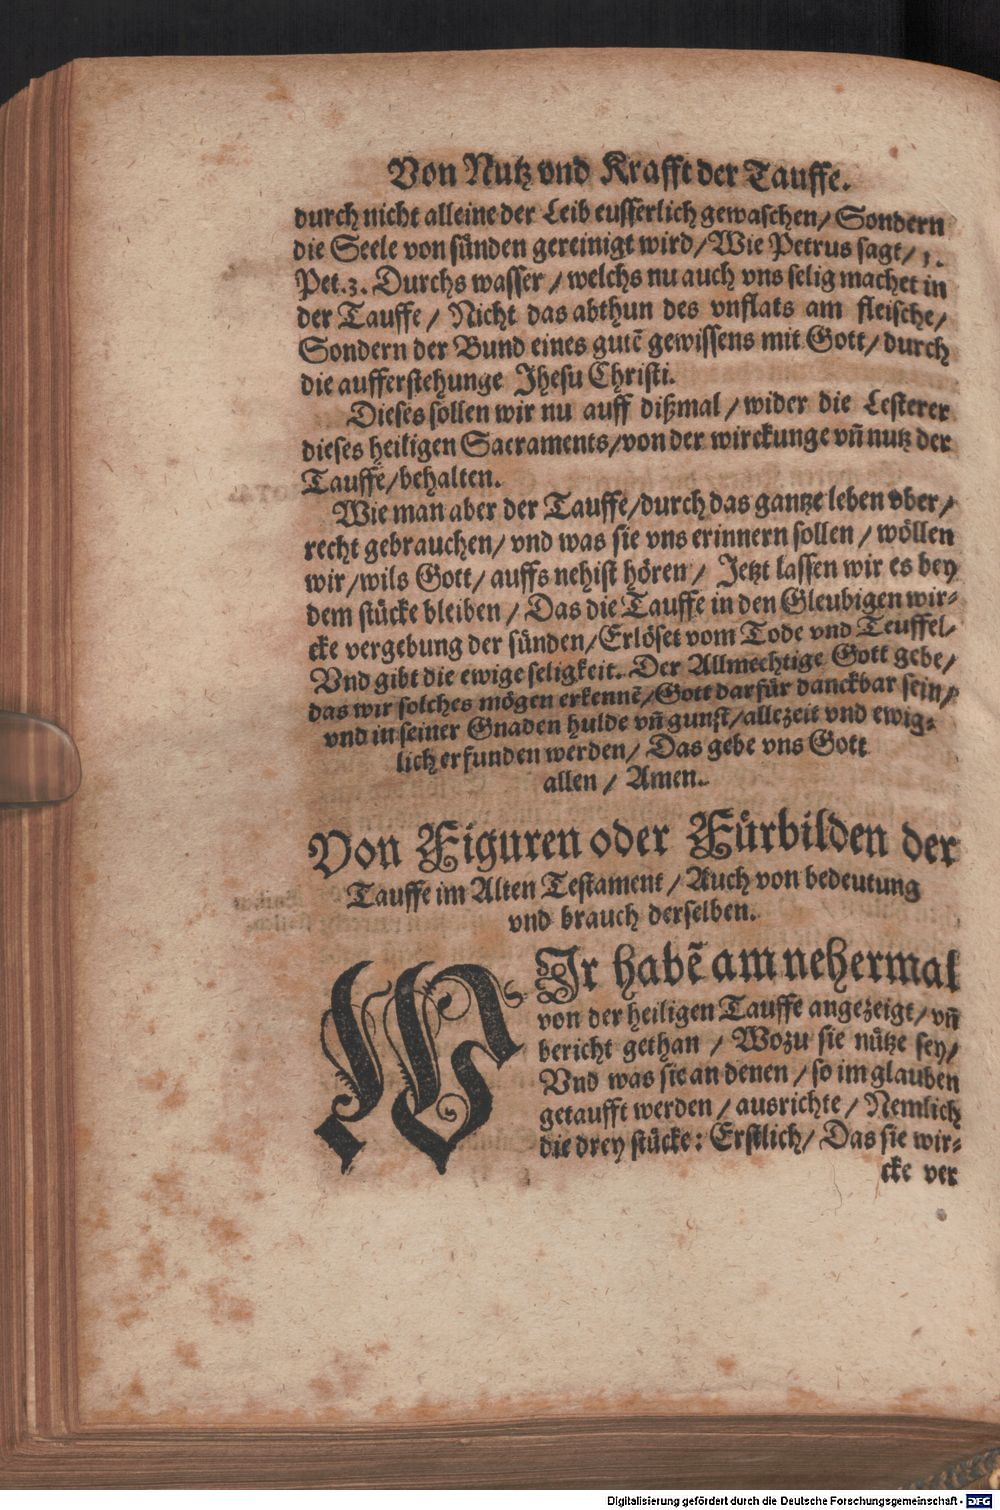 Von Nutz vnd Krafft der Tauffe.
durch nicht alleine der Leib eusserlich gewaschen/ Sondern
die Seele von sünden gereinigt wird/ Wie Petrus sagt/ 1.
Pet.3. Durchs wasser / welchs nu auch vns selig machet in
der Tauffe / Nicht das abthun des vnflats am fleische/
Sondern der Bund eines gutē gewissens mit Gott/ durch
die aufferstehunge Jhesu Christi.
Dieses sollen wir nu auff dißmal / wider die Lesterer
dieses heiligen Sacraments/ von der wirckunge vn̄ nutz der
Tauffe/ behalten.
Wie man aber der Tauffe/ durch das gantze leben vber/
recht gebrauchen/ vnd was sie vns erinnern sollen / wöllen
wir/ wils Gott/ auffs nehist hören / Jetzt lassen wir es bey
dem stücke bleiben / Das die Tauffe in den Gleubigen wir-
cke vergebung der sünden/ Erlöset vom Tode vnd Teuffel/
Vnd gibt die ewige seligkeit. Der Allmechtige Gott gebe/
das wir solches mögen erkennē/ Gott darfür danckbar sein/
vnd in seiner Gnaden hulde vn̄ gunst/ allezeit vnd ewig-
lich erfunden werden/ Das gebe vns Gott
allen / Amen.
Von Figuren oder Fürbilden der
Tauffe im Alten Testament / Auch von bedeutung
vnd brauch derselben.
WJr habē am nehermal
von der heiligen Tauffe angezeigt/ vn̄
bericht gethan / Wozu sie nütze sey/
Vnd was sie an denen / so im glauben
getaufft werden / ausrichte / Nemlich
die drey stücke: Erstlich/ Das sie wir-
cke ver
Digitalisierung gefördert durch die Deutsche Forschungsgemeinschaft - DFG